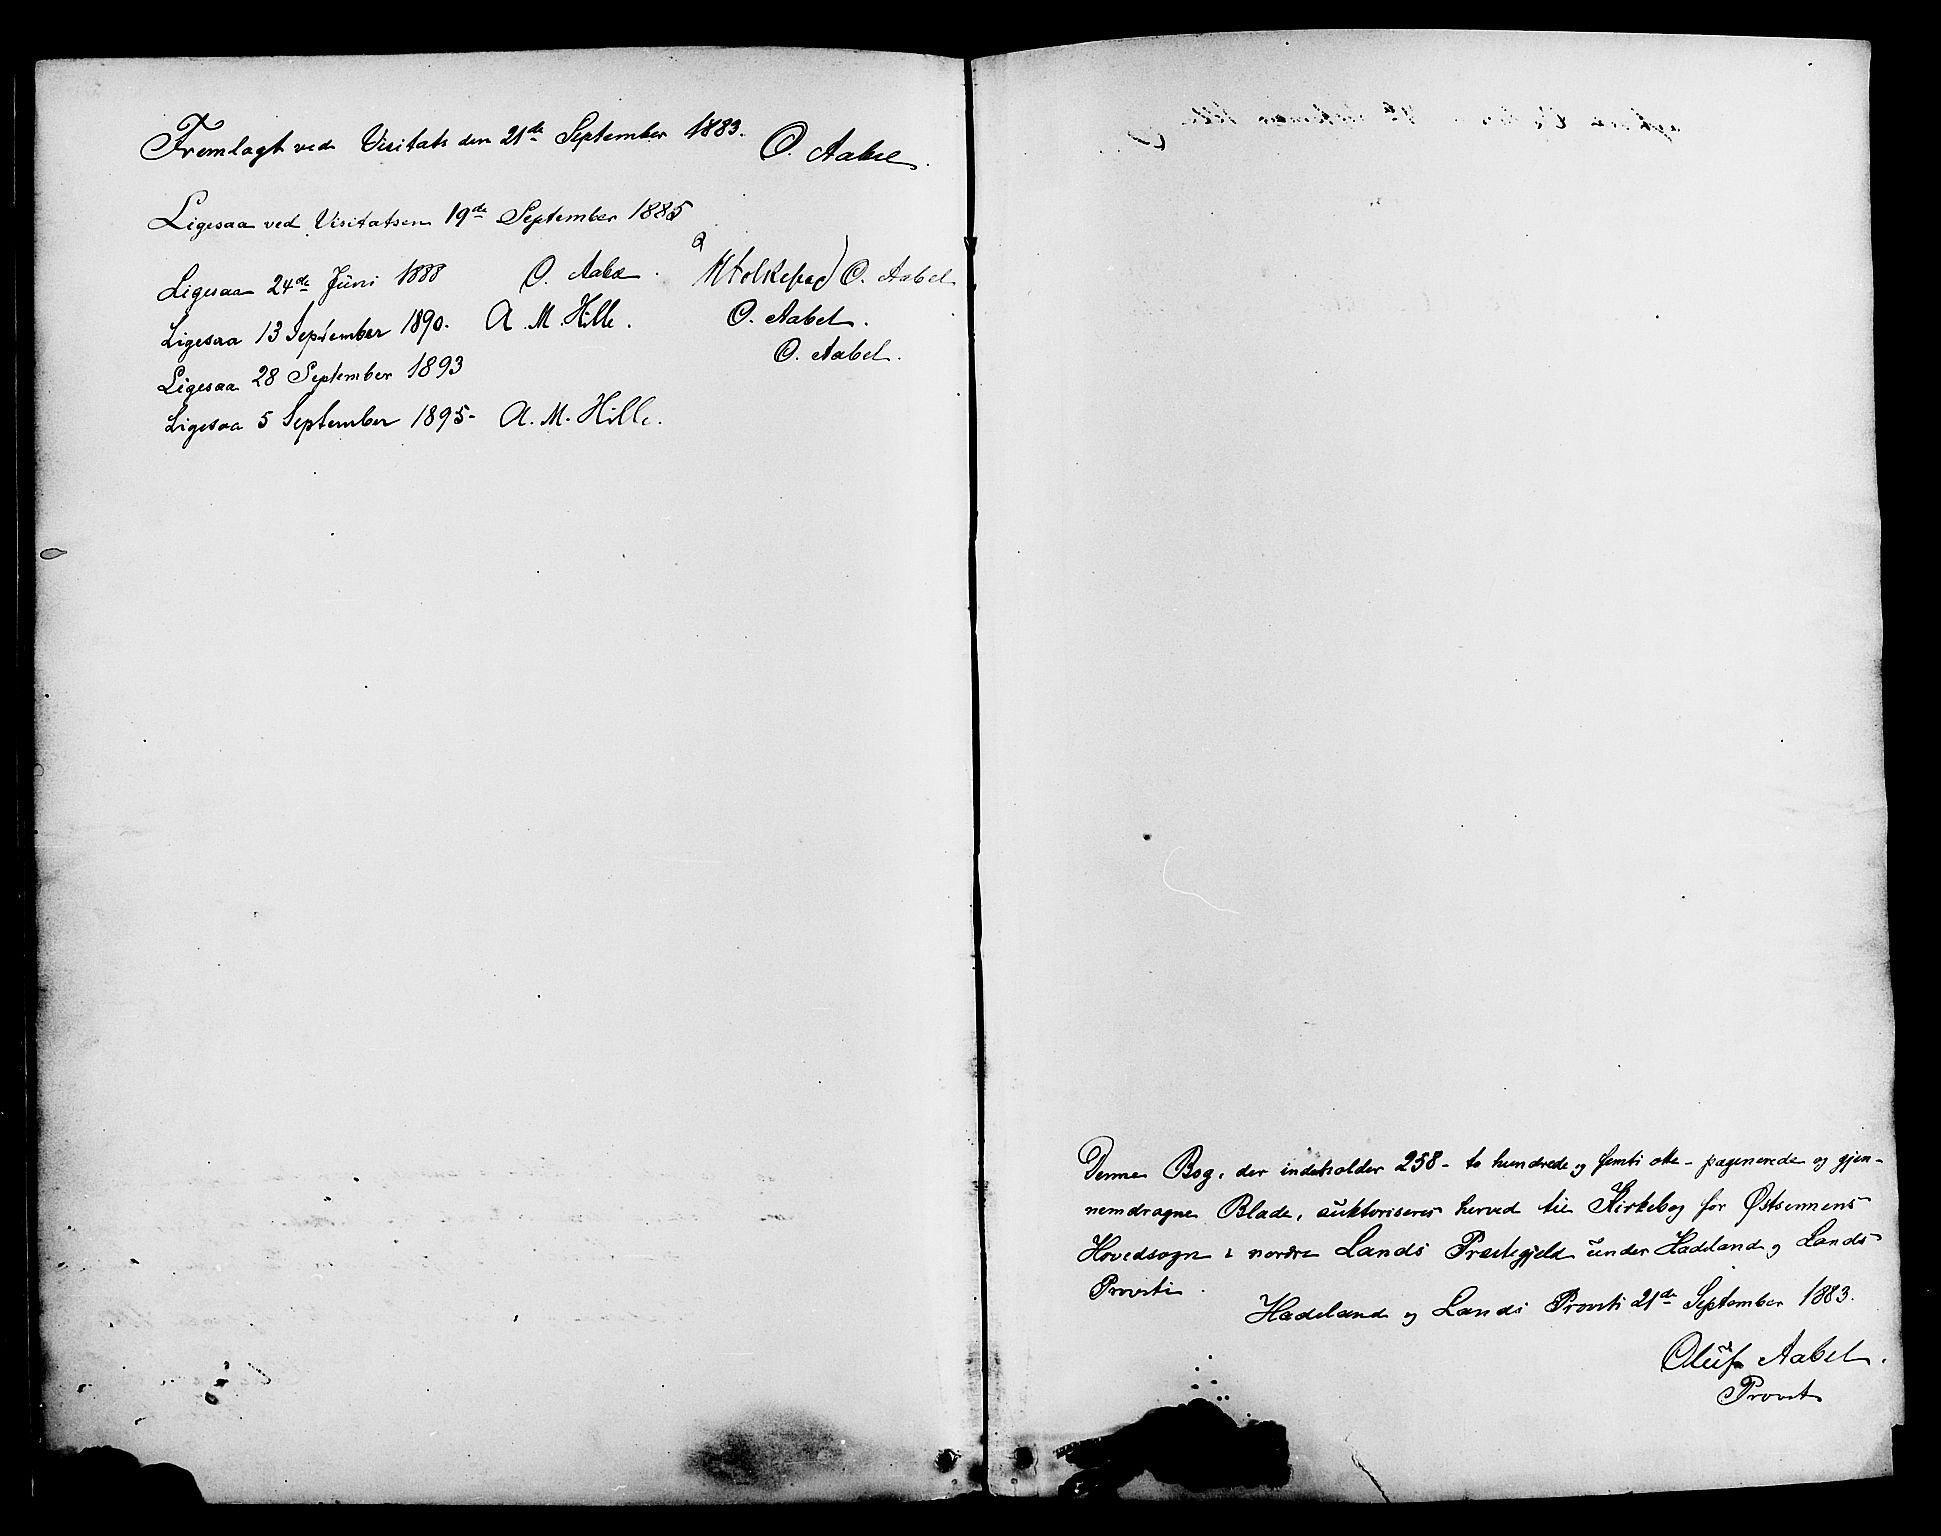 Fremlagt ved Visitats den 21de September 1883. O. Aabel.
Ligesaa ved Visitatsen 19de September 1885
Ligesaa 24de Juni 1888 O. Aabel. O. Aabel
Ligesaa 13 September 1890. A. M. Hille. O. Aabel.
O. Aabel.
Ligesaa 28 September 1893
Ligesaa 5 September 1895- A. M. Hille.
Denne Bog, der indeholder 258 - to hundrede og femti otte - paginerede og gjen-
nemdragne Blade, auktoriseres herved til Kirkebog for Østsennens
Hovedsogn i nordre Lands Præstegjeld under Hadeland og Lands
Provsti.
Hadeland og Lands Provsti 21de September 1883.
Oluf Aabel.
Provst